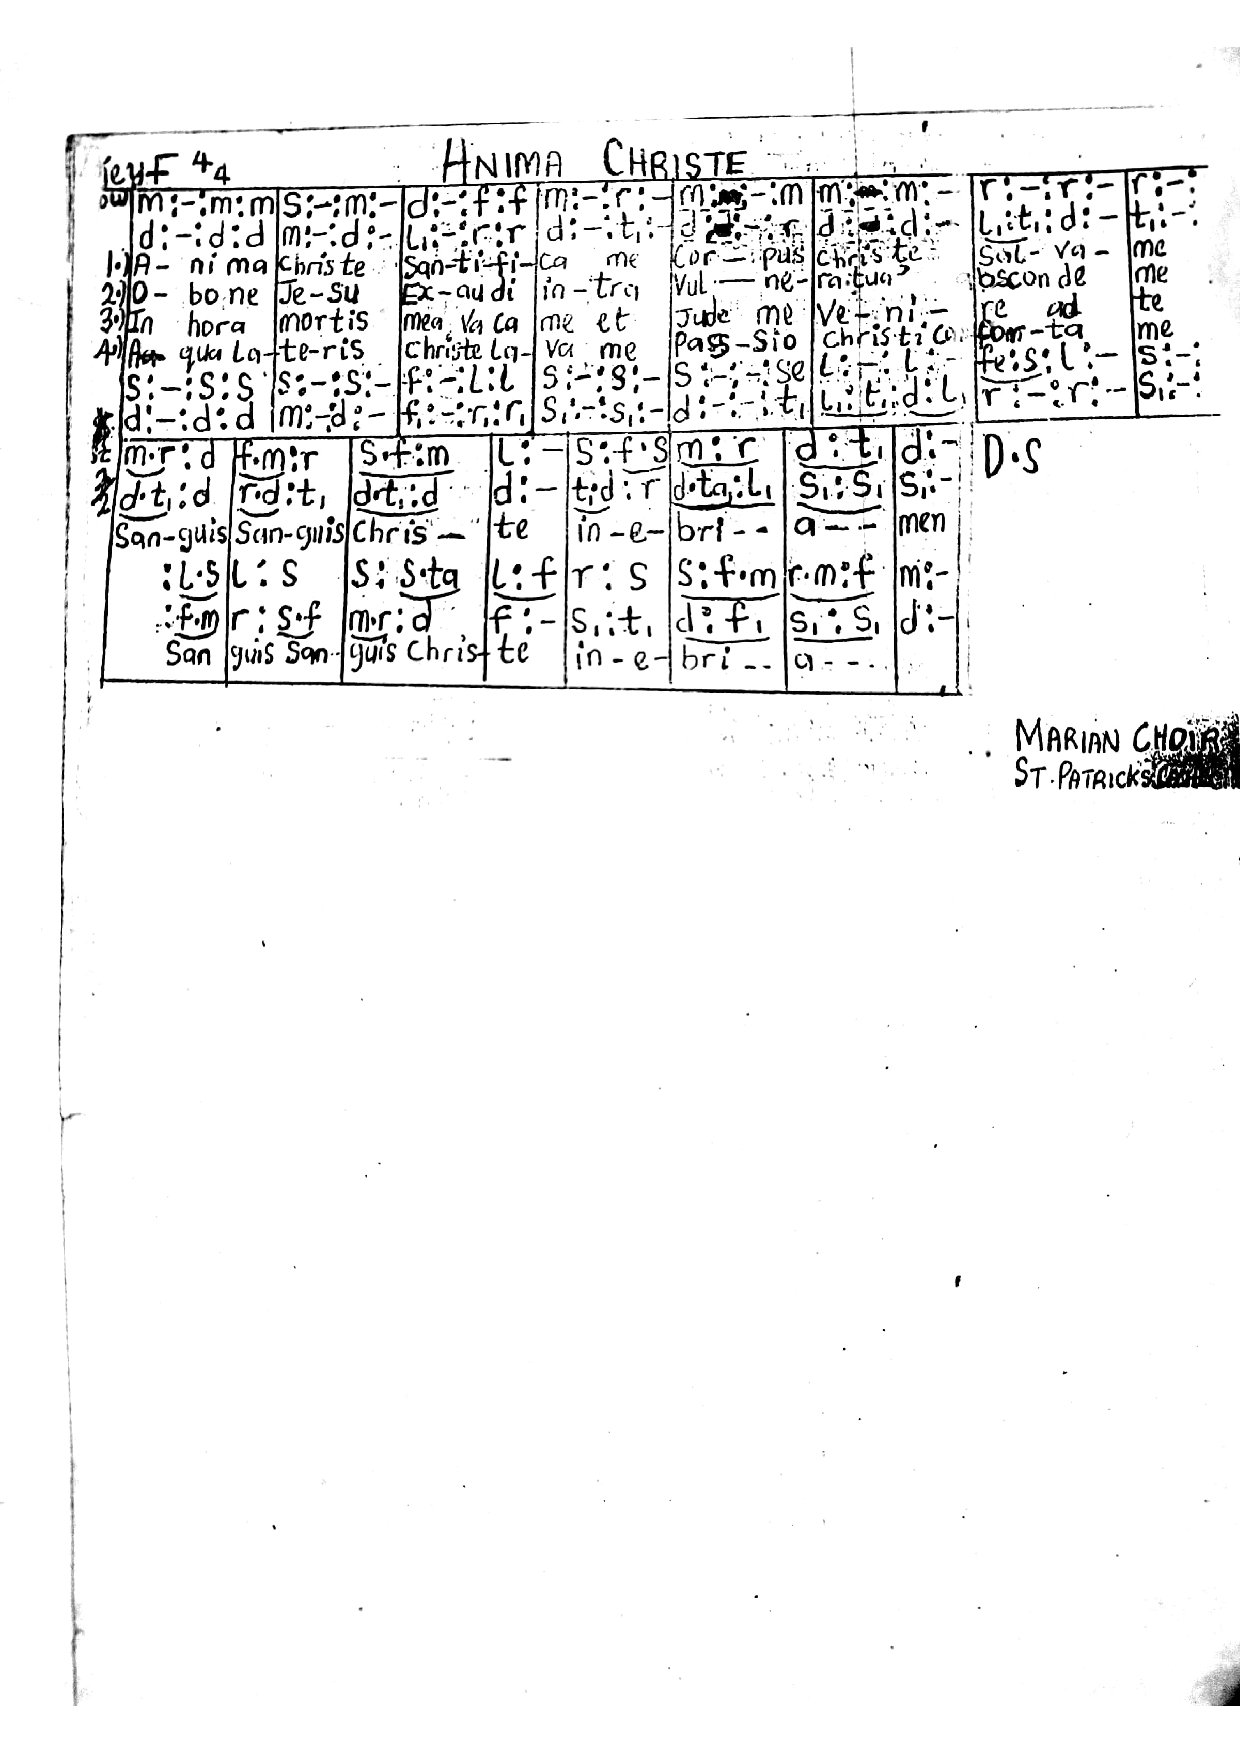 ieyF 4/4 ANIMA CHRISTE
m:-:m:m | S:-:m:- | d:-:f:f | m:-:r:- | m: :-:m | m: m:- | r:-:r:- | r:-:
d:-:d:d | m:-:d:- | L₁:-:r:r | d:-:t₁:- | d: :-:r | d: :d:- | L₁:t₁:d:- | t₁:-:
1.) A- ni ma Christe San-ti-fi- ca me Cor-- pus Christe Sal- va- me
2.) O- bo ne Je-Su Ex-au di in-tra Vul-- ne- ra tua bscon de me
3.) In hora mortis mea, Va ca me et Jude me Ve-ni- re ad te
4.) qua La- te-ris Christe La- va me Pass-Sio Christi Co com-ta me
S:-:S:S | S:-:S:- | f:-:L:L | S:-:S:- | S:-:-:Se | L:-:L:- | fe:S:L:- | S:-:
d:-:d:d | m:-:d:- | f₁:-:r₁:r₁ | S₁:-:S₁:- | d:-:-:t₁ | L₁:t₁:d:L₁ | r:-:r:- | S₁:-:
m·r:d | f·m:r | S·f:m | L:- | S:f·S | m:r | d:t₁ | d:- D·S
d·t₁:d | r·d:t₁ | d·t₁:d | d:- | t₁·d:r | d·ta₁:L₁ | S₁:S₁ | S₁:-
San-guis San-guis Chris- te in-e- bri-- a-- men
:L·S | L:S | S:S·ta | L:f | r:S | S:f·m | r·m:f | m:-
:f·m | r:S·f | m·r:d | f:- | S₁:t₁ | d:f₁ | S₁:S₁ | d:-
San guis San- guis Chris- te in-e- bri-- a---
MARIAN CHOIR
ST. PATRICKS